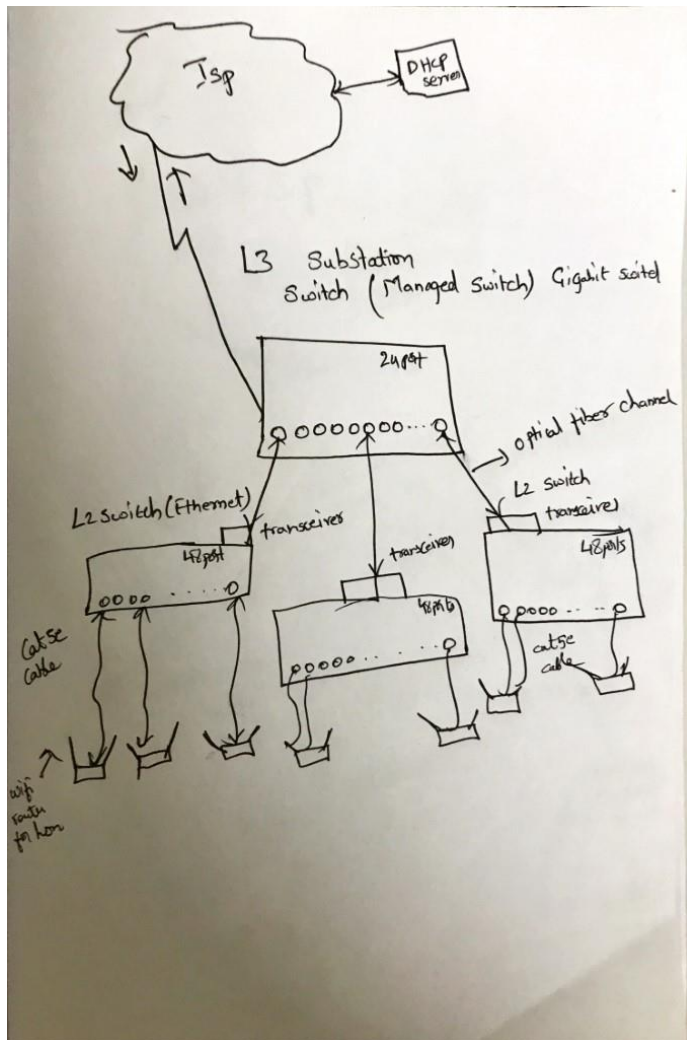 Isp
DHCP
server
L3 Substation
Switch (Managed Switch) Gigabit
24port
optical fiber channel
L2 switch (Ethernet)
transceiver
48port
L2 switch
transceiver
48ports
transceiver
48ports
Cat5e
cable
cat5e
cable
wifi
router
for